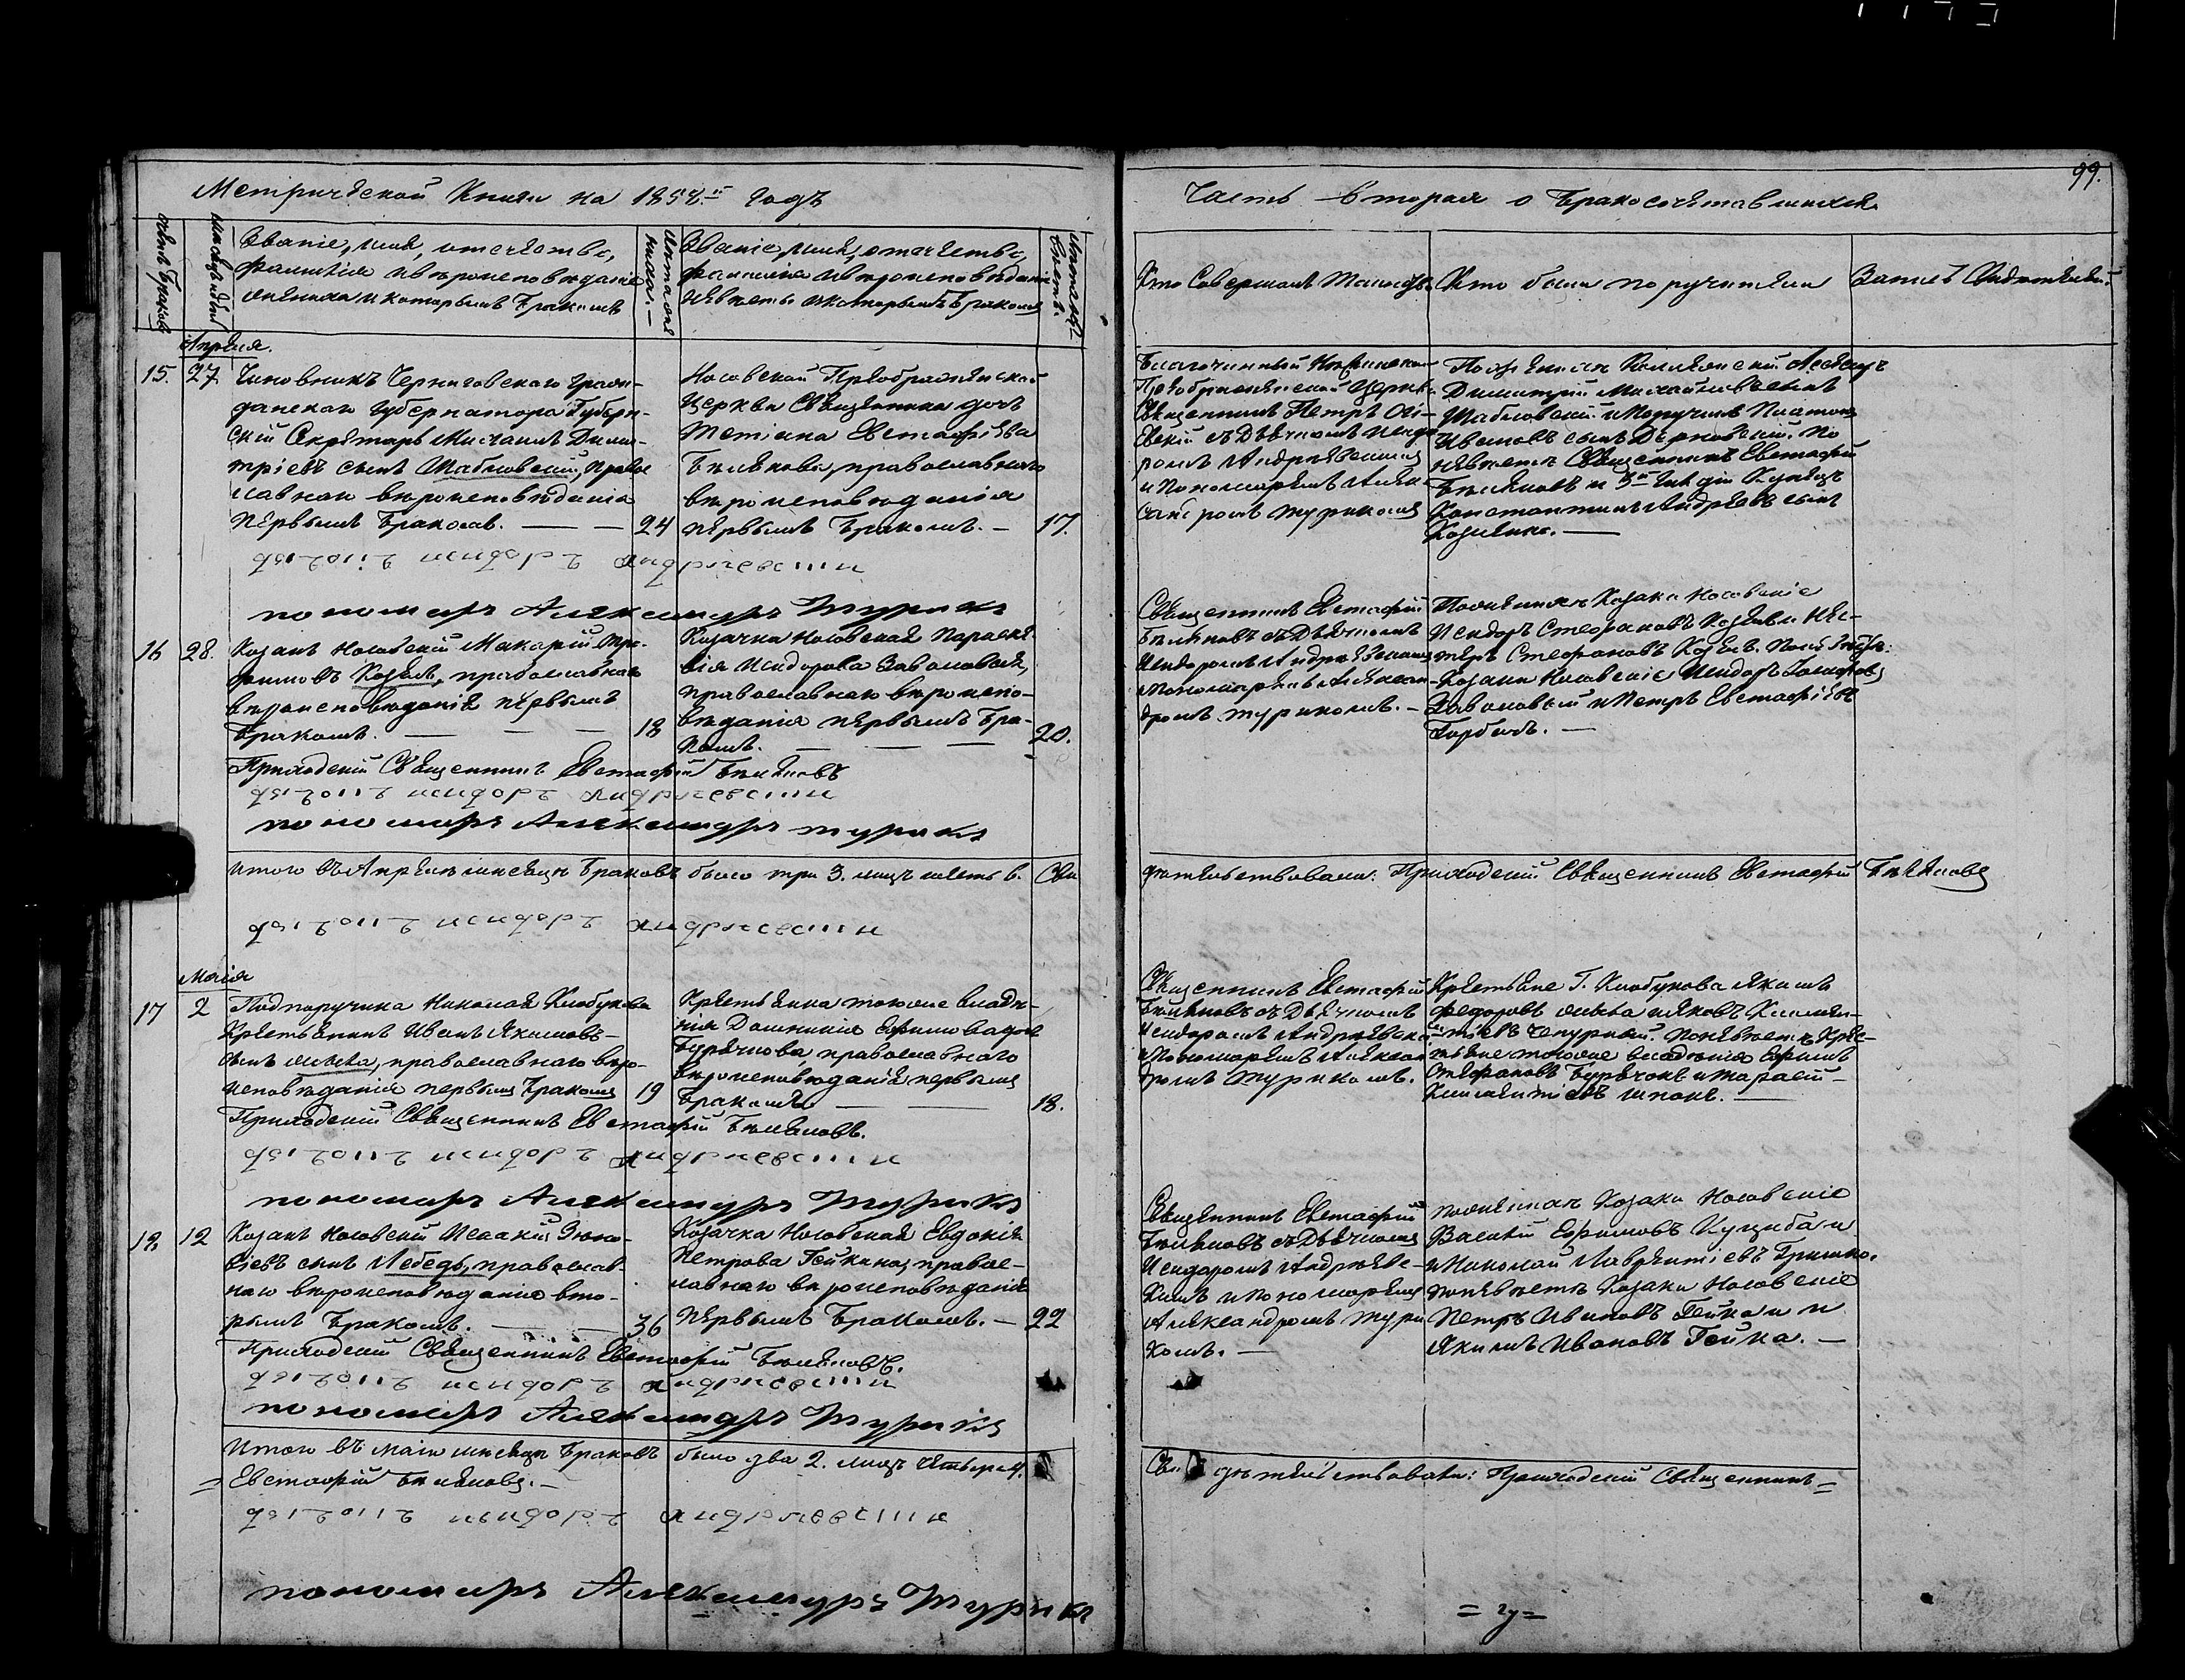 99.
Метрической Книги на 1854.й годъ
Часть вторая о бракосочетавшихся
Счетъ браковъ
Месяцъ и день
Званіе, имя, отечество,
фамилія и вѣроисповѣданіе
жениха и которымъ бракомъ
Лѣта жениха.
Званіе, имя, отечество,
фамилія и вѣроисповѣданіе
невѣсты и которымъ бракомъ
Лѣта невѣсты.
Кто совершалъ таинство
Кто были поручители
Апреля.
15.
27
Чиновникъ Черниговскаго Граж-
данскаго Губернатора Губерн-
скій Секретарь Михаилъ Дими-
тріевъ сынъ Шабловскій, право-
славнаго вѣроисповѣданія
первымъ бракомъ.
24
Носовской Преображенской
Церкви Священника дочь
Татіана Евстафіева
Бѣлякова, православнаго
вѣроисповѣданія
первымъ бракомъ.
17.
Преображенской Церкви
Священникъ Петръ
съ Дьячкомъ Исидо-
ромъ Андріевскимъ
и Пономаремъ Алек-
сандромъ Туриком
По женихѣ Коллежскій Асессоръ
Димитрій Михайловъ сынъ
Шабловскій и Поручикъ Платонъ
Ивановъ сынъ. По
невѣстѣ Священникъ Евстафій
Бѣляковъ и 3й гильдіи Купецъ
Константинъ Андреевъ сынъ
дьячокъ исидоръ андріевскій
пономарь Александръ Турикъ
16
28.
Козакъ Носовскій Макарій Тро-
фимовъ Козелъ, православнаго
вѣроисповѣданія первымъ
бракомъ.
18
Козачка Носовская Параске-
вія Исидорова Заволовая,
православнаго вѣроиспо-
вѣданія первымъ бра-
комъ.
20.
Священникъ Евстафій
Бѣляковъ съ Дьячкомъ
Исидоромъ Андріевскимъ
и Пономаремъ Алексан-
дромъ Турикомъ.
По женихѣ Козаки Носовскіе
Исидоръ Стефановъ Козелъ и Нес-
теръ Стефановъ Козелъ. По невѣстѣ:
Козаки Носовскіе Исидоръ
и Петръ Евстафіевъ
Горбачъ.
Приходскій Священникъ Евстафій Бѣляковъ
дьячокъ исидоръ андріевскій
пономарь Александръ Турикъ
Итого въ Апрелѣ мѣсяцѣ браковъ было три 3. лицъ шесть 6. Сви
дѣтельствовали: Приходскій Священникъ Евстафій Бѣляковъ
дьячокъ исидоръ андріевскій
Маія
17
2
Подпоручика Николая Клобукова
Крестьянинъ Иванъ Якимовъ
сынъ, православнаго вѣро-
исповѣданія первымъ бракомъ
19
Крестьянка тогоже владѣ-
нія Домникія Ефимова дочь
Бурячкова, православнаго
вѣроисповѣданія первымъ
бракомъ
18.
Священникъ Евстафій
Бѣляковъ съ Дьячкомъ
Исидоромъ Андріевски
и Пономаремъ Алексан
дромъ Турикомъ.
Крестьяне Г. Клобукова Якимъ
Федоровъ и Яковъ Климен-
тіевъ Чепурный. По невѣстѣ Крес-
тьяне тогоже владѣнія Ефимъ
Стефановъ Бурячокъ и Тарасій
Климентіевъ Шпакъ.
Приходскій Священникъ Евстафій Бѣляковъ.
дьячокъ исидоръ андріевскій
пономарь Александръ Турикъ
18.
12
Козакъ Носовскій Исаакій
сынъ Лебедь, православ-
наго вѣроисповѣданія вто-
рымъ бракомъ.
36
Козачка Носовская Евдокія
Петрова Гейкина, правос-
лавнаго вѣроисповѣданія
первымъ бракомъ.
22
Священникъ Евстафій
Бѣляковъ съ Дьячкомъ
Исидоромъ Андріевс-
кимъ и Пономаремъ
Александромъ Тури
комъ.
По женихѣ Козаки Носовскіе
Василій Ефимовъ Куциба и
Николай Лаврентіевъ Гришко.
По невѣстѣ Козаки Носовскіе
Петръ Ивановъ Гейка и
Якимъ Ивановъ Гейка.
Приходскій Священникъ Евстафій Бѣляковъ.
дьячокъ исидоръ андріевскій
пономарь Александръ Турикъ
Итого въ Маіи мѣсяцѣ браковъ было два 2. лицъ четыре 4.
Свидѣтельствовали: Приходскій Священникъ =
= Евстафій Бѣляковъ.
дьячокъ исидоръ андріевскій
пономарь Александръ Турикъ